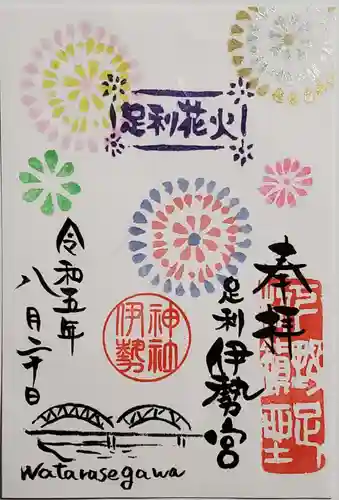 足利花火
奉拝
足利伊勢宮
伊勢神社
令和五年
八月二十日
Watarasegawa